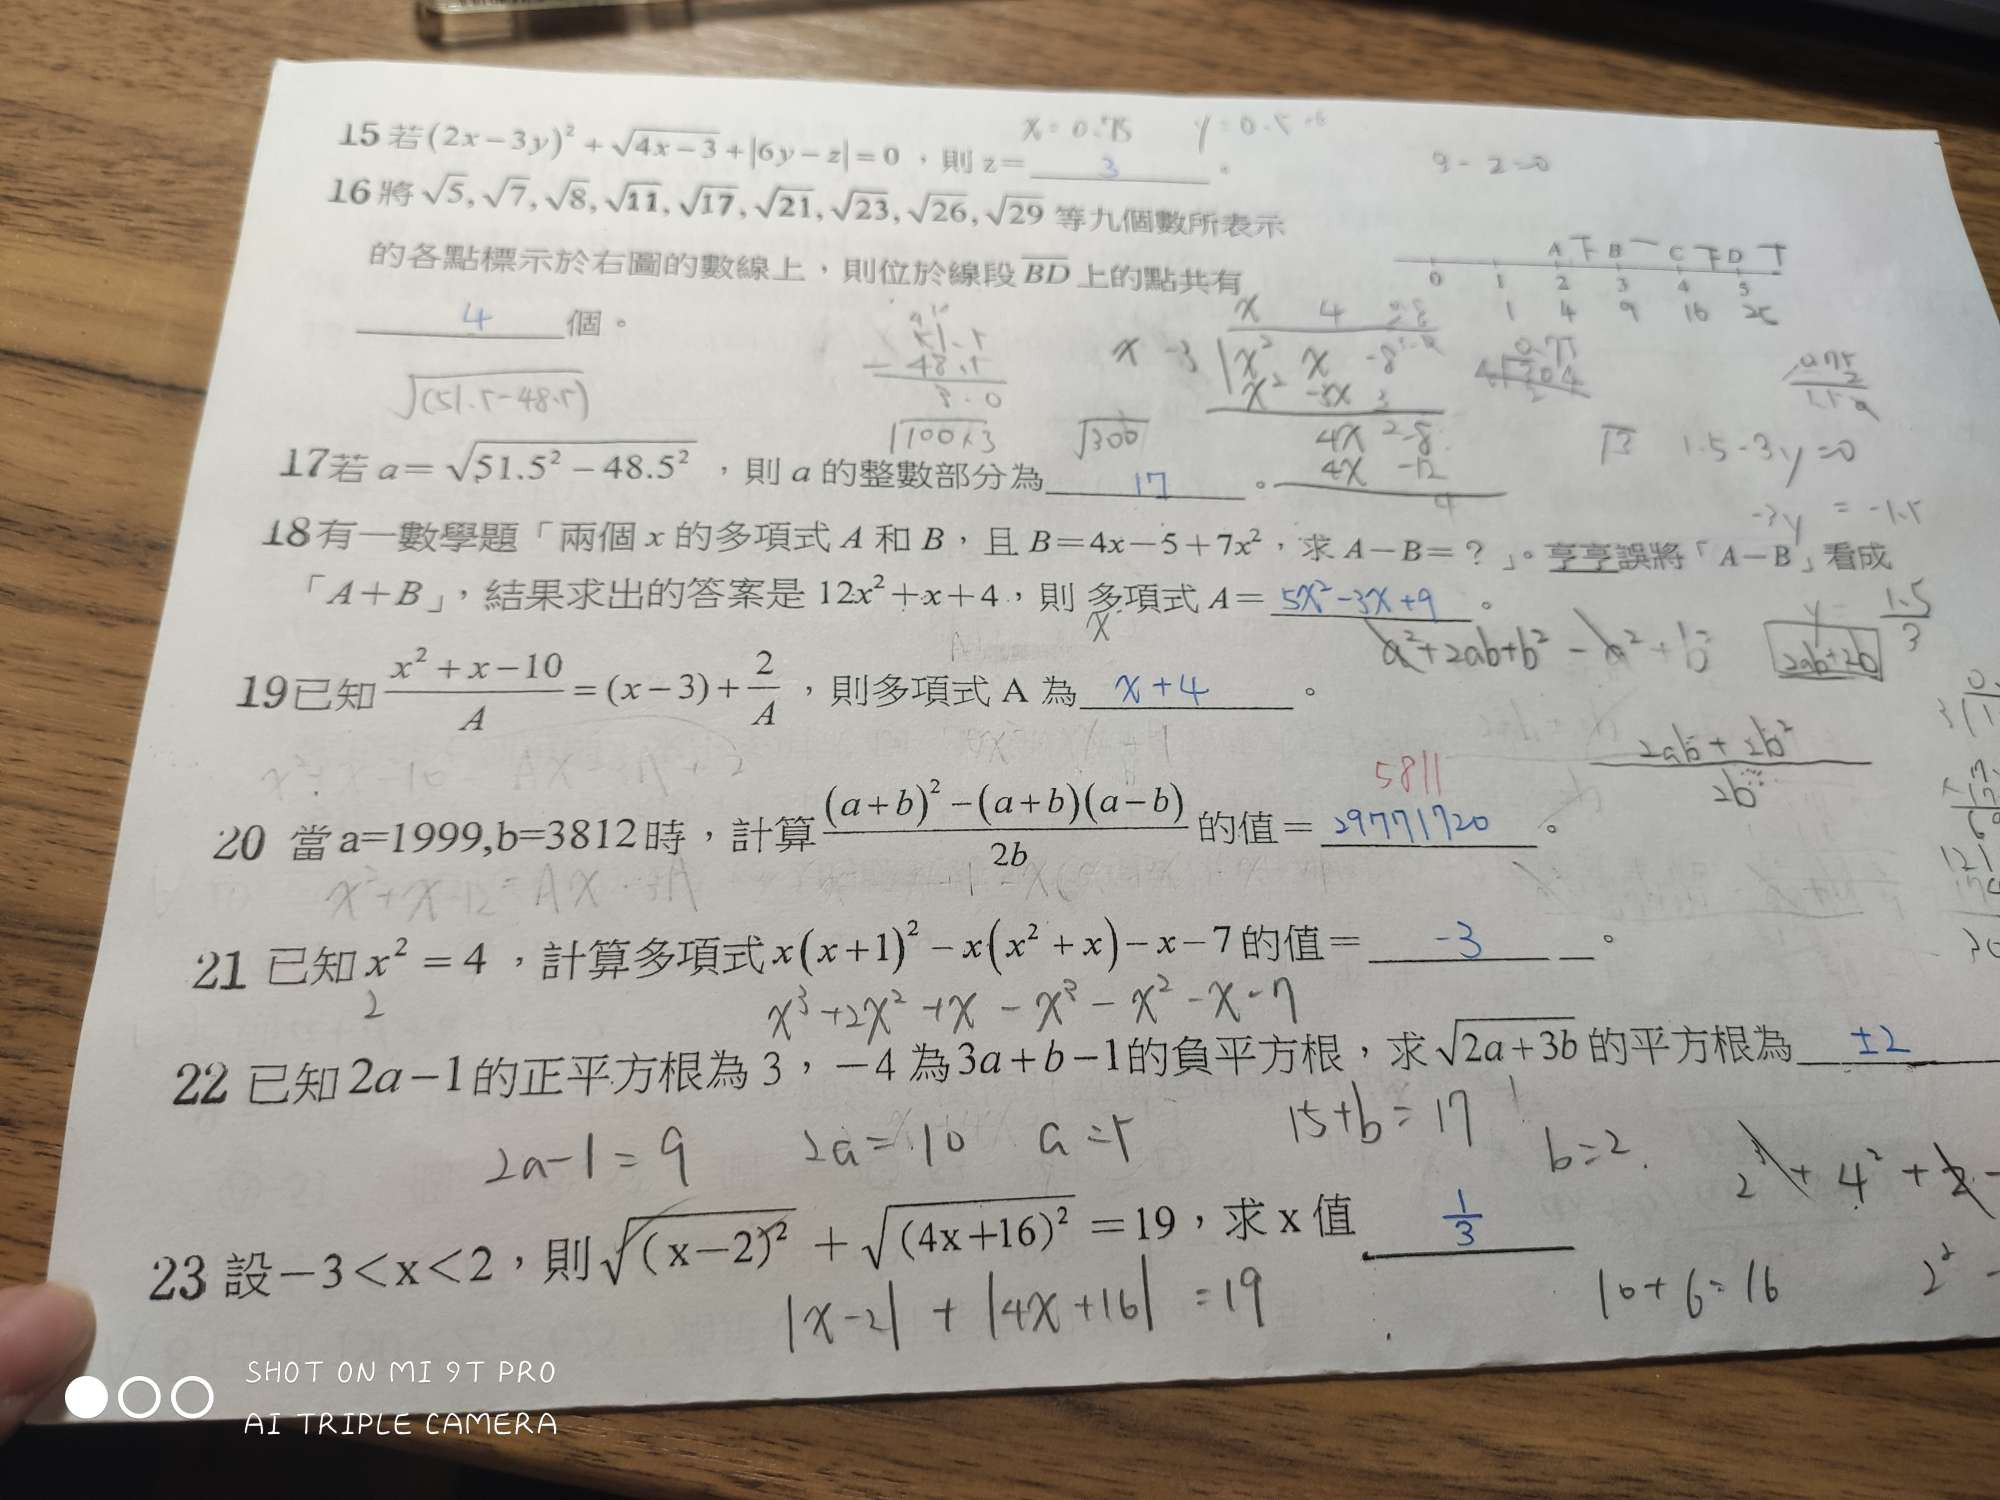 x=0.75 y=0.5
15 若(2x-3y)²+√(4x-3)+|6y-z|=0，則 z= 3 。
9-z=0
16 將√5,√7,√8,√11,√17,√21,√23,√26,√29 等九個數所表示
的各點標示於右圖的數線上，則位於線段BD上的點共有
4 個。
A B C D
0 1 2 3 4 5
1 4 9 16 25
√(51.5-48.5)
51.5
-48.5
3.0
√100×3 √300
x 4
x -3 x² x -8
x² -3x
4x -8
4x -12
4
√3 1.5-3y=0
-3y = -1.5
17 若 a=√(51.5²-48.5²)，則 a 的整數部分為 17 。
18 有一數學題「兩個 x 的多項式 A 和 B，且 B=4x-5+7x²，求 A-B=？」。亨亨誤將「A-B」看成
「A+B」，結果求出的答案是 12x²+x+4，則 多項式 A= 5x²-3x+9 。
y= 1.5/3
a²+2ab+b²-a²+b² 2ab+2b
19 已知 (x²+x-10)/A=(x-3)+2/A，則多項式 A 為 x+4 。
x²+x-10 = Ax-3A+2
(2ab+2b²)/2b
5811
20 當a=1999,b=3812時，計算((a+b)²-(a+b)(a-b))/2b的值= 29771720 。
x²+x-12=Ax-3A
21 已知x²=4，計算多項式x(x+1)²-x(x²+x)-x-7的值= -3 。
2
x³+2x²+x-x³-x²-x-7
22 已知2a-1的正平方根為3，-4為3a+b-1的負平方根，求√(2a+3b)的平方根為 ±2
2a-1=9 2a=10 a=5 15+b=17 b=2
2³+4²+2-
23 設-3<x<2，則√(x-2)²+√(4x+16)²=19，求x值 1/3
|x-2|+|4x+16|=19
10+6=16 2²-
SHOT ON MI 9T PRO
AI TRIPLE CAMERA